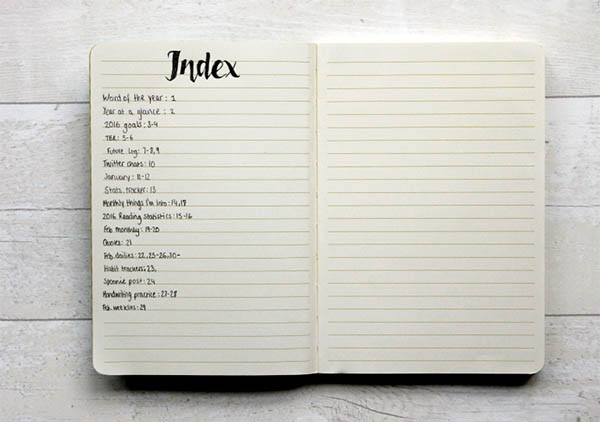 Index
Word of the year: 1
Year at a glance: 2
2016 goals: 3-4
TBR: 5-6
Future log: 7-8,9
Twitter chats: 10
January: 11-12
Stats tracker: 13
Monthly things I'm into: 14,18
2016 Reading statistics: 15-16
Feb monthly: 19-20
Quotes: 21
Feb. dailies: 22,25-26,30-
Habit trackers: 23,
Spoonie post: 24
Handwriting practice: 27-28
Feb. weeklies: 29